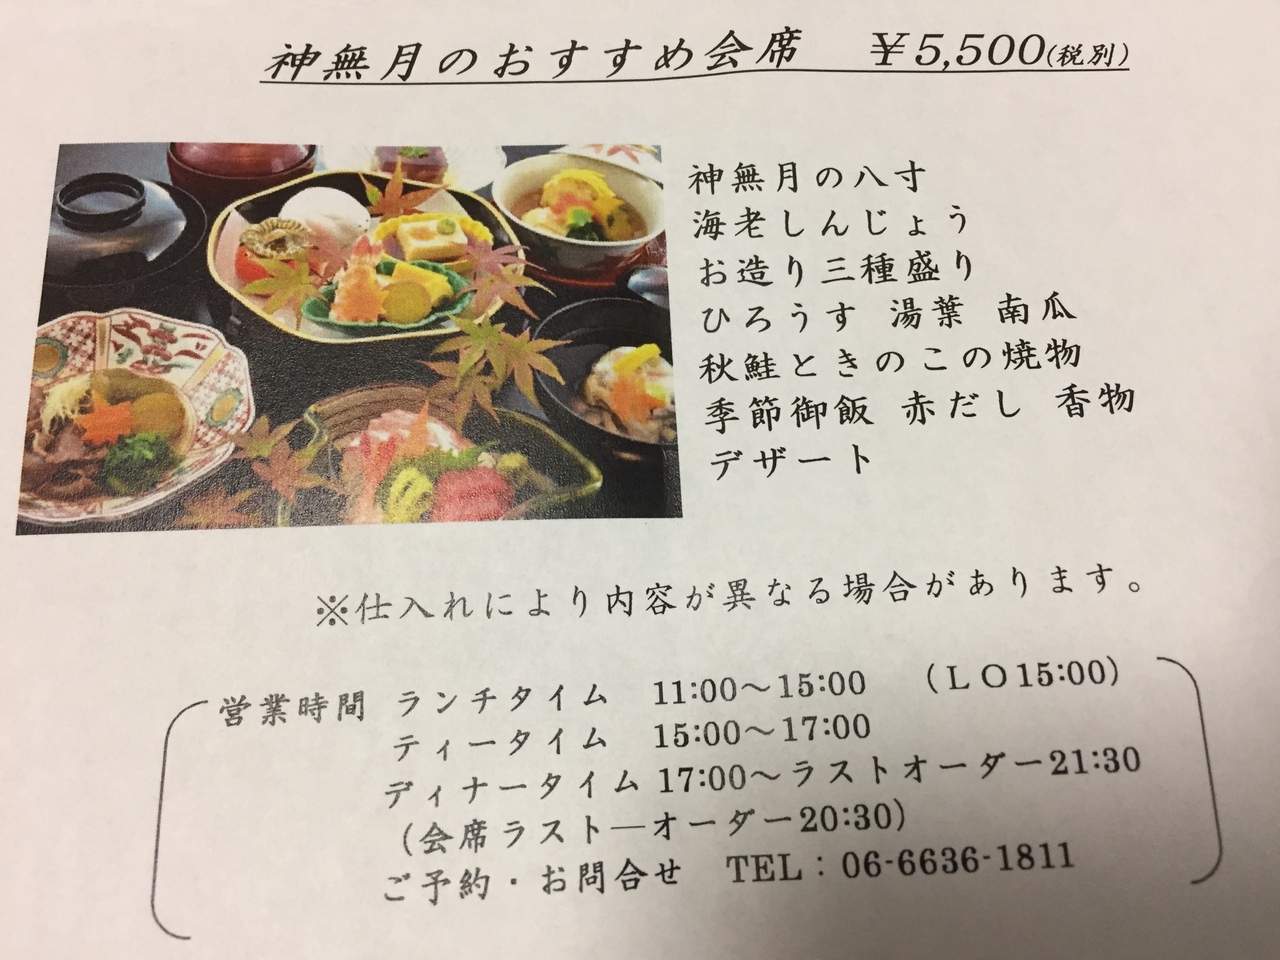 神無月のおすすめ会席 ￥5,500(税別)
神無月の八寸
海老しんじょう
お造り三種盛り
ひろうす 湯葉 南瓜
秋鮭ときのこの焼物
季節御飯 赤だし 香物
デザート
※仕入れにより内容が異なる場合があります。
営業時間 ランチタイム 11:00～15:00 （ＬＯ15:00）
ティータイム 15:00～17:00
ディナータイム 17:00～ラストオーダー21:30
（会席ラスト―オーダー20:30）
ご予約・お問合せ TEL：06-6636-1811